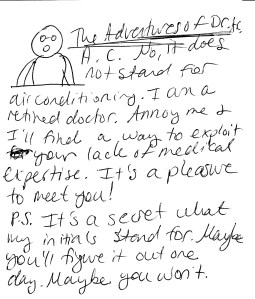 The Adventures of Dr. A.C.
A.C. No, it does
not stand for
air conditioning. I am a
retired doctor. Annoy me &
I'll find a way to exploit
your lack of medical
expertise. It's a pleasure
to meet you!
P.S. It's a secret what
my initials stand for. Maybe
you'll figure it out one
day. Maybe you won't.